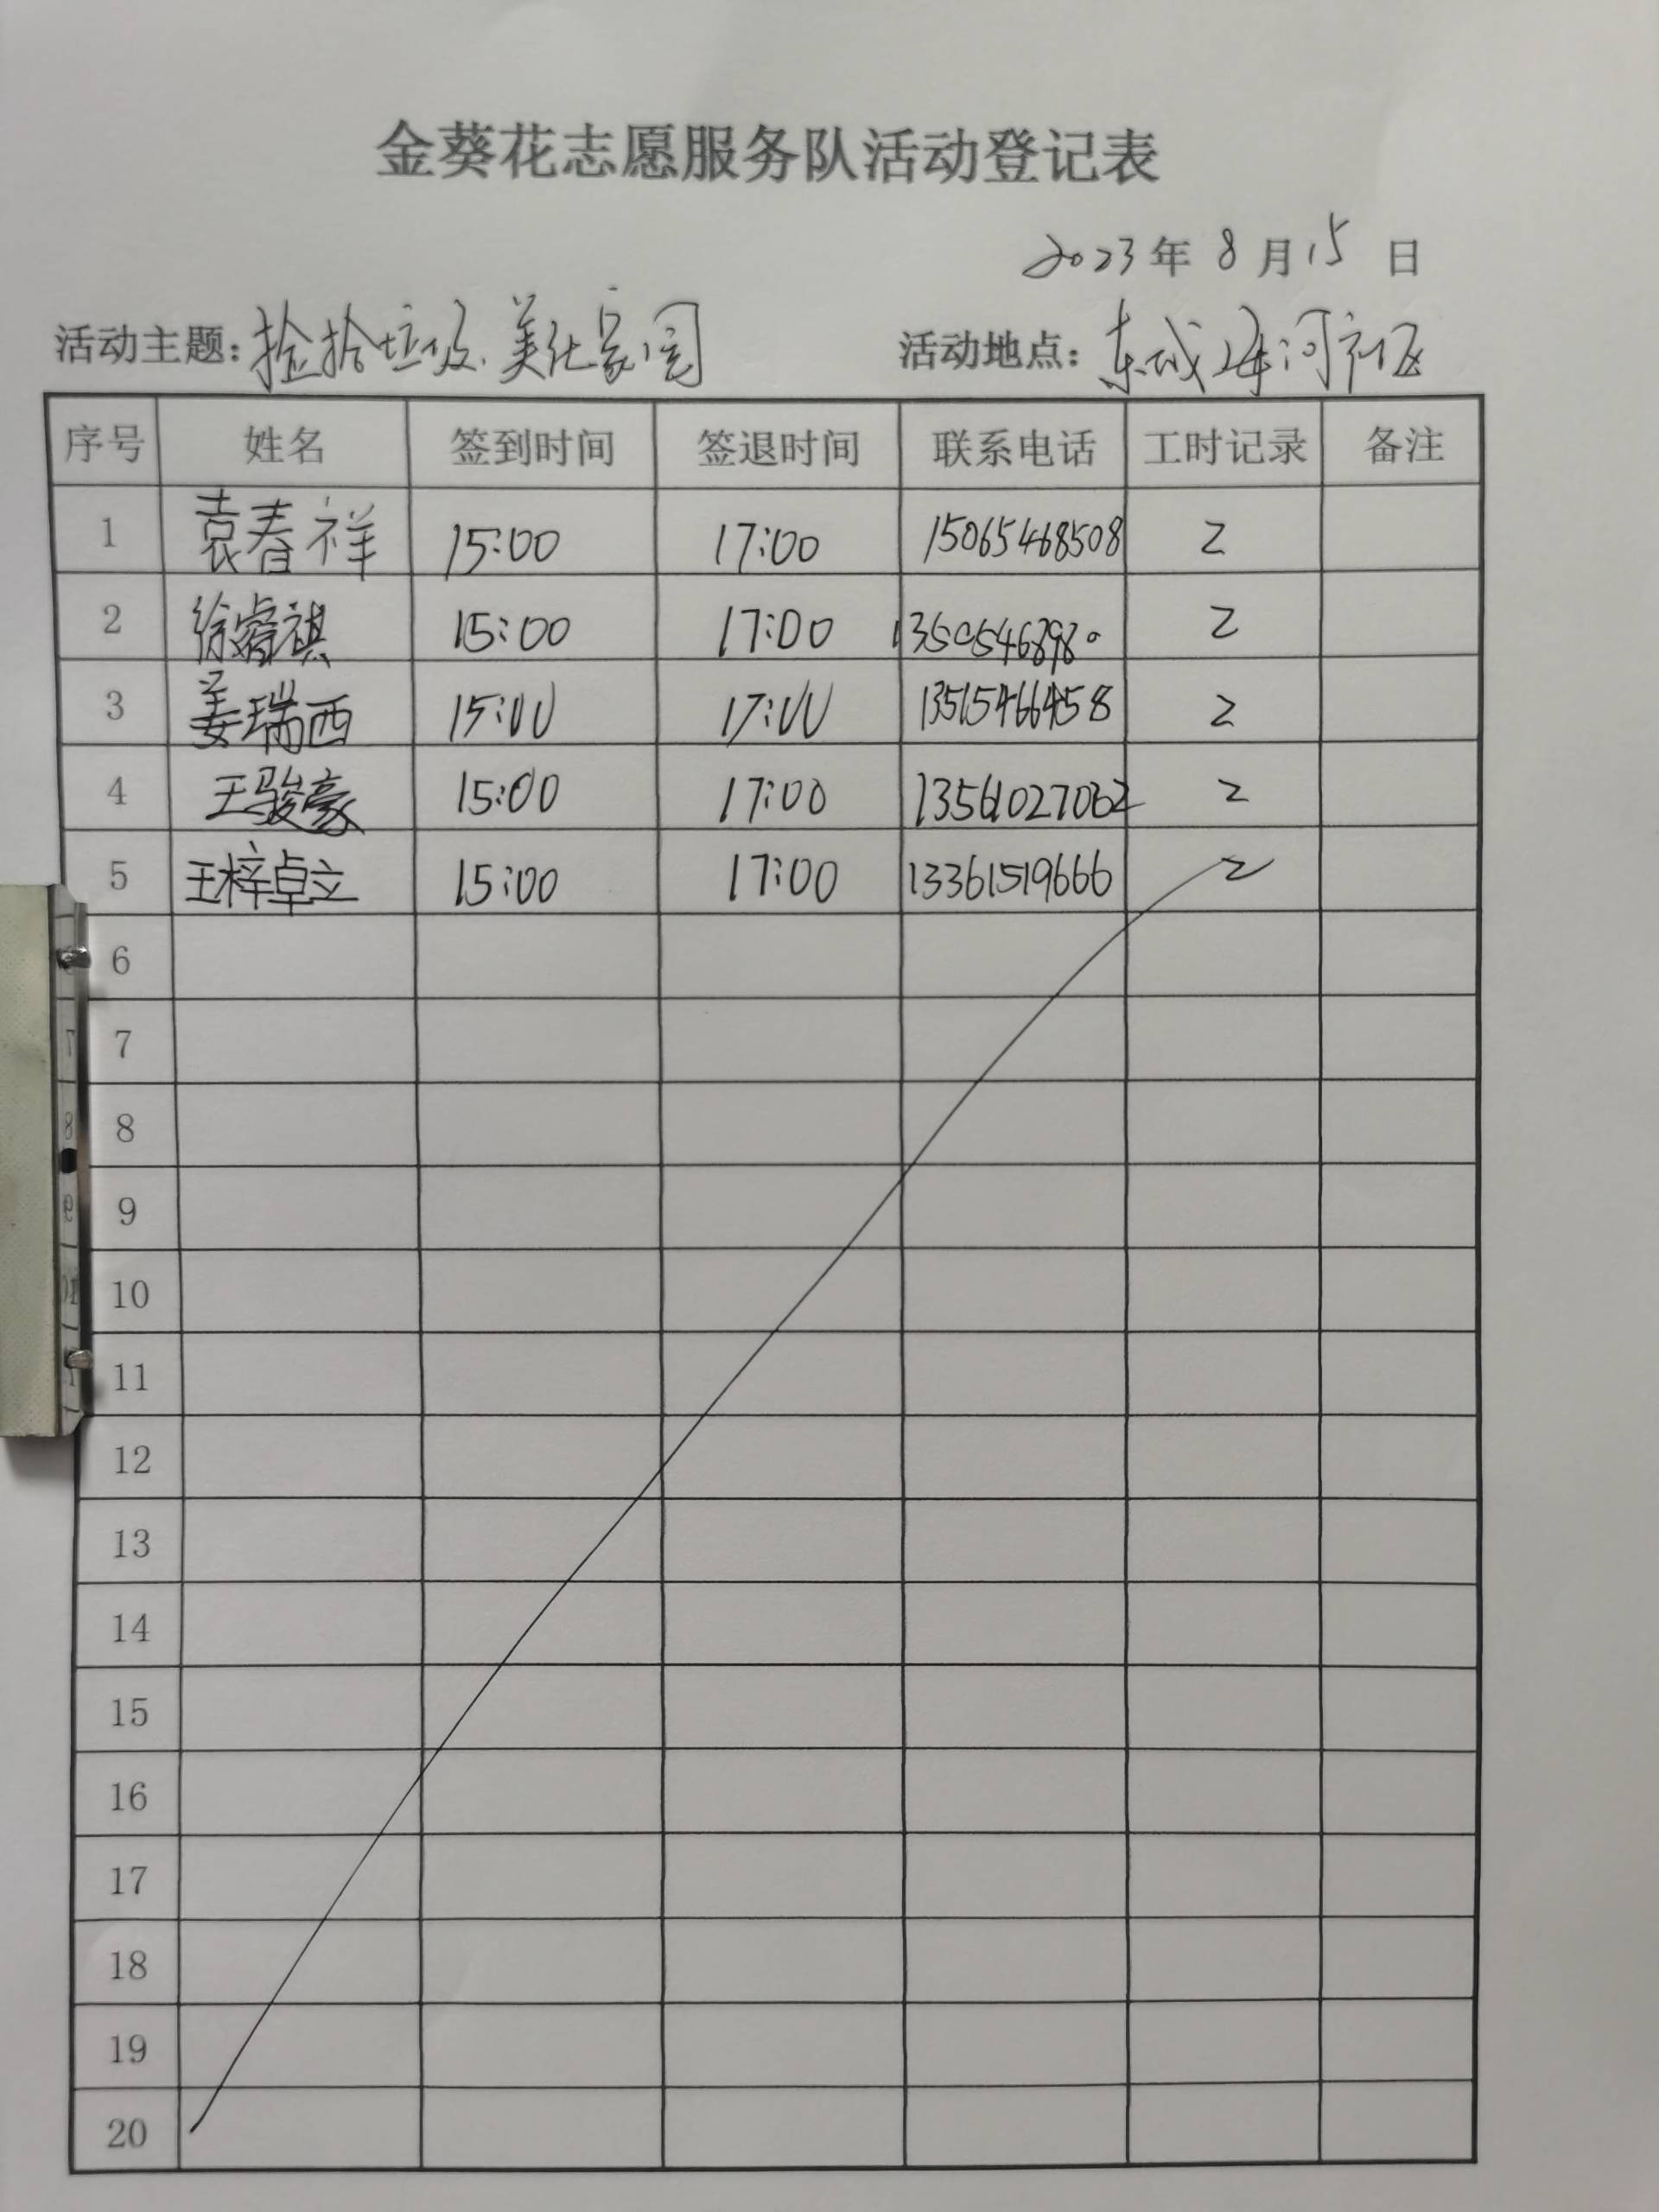 金葵花志愿服务队活动登记表
2023年 8 月 15 日
活动主题：捡拾垃圾.美化家园 活动地点：东城海河社区
序号 姓名 签到时间 签退时间 联系电话 工时记录 备注
1 袁春祥 15:00 17:00 15065468508 2
2 徐睿祺 15:00 17:00 2
3 姜瑞西 15:00 17:00 13515466458 2
4 王骏豪 15:00 17:00 2
5 王梓卓立 15:00 17:00 13361519666 2
6
7
8
9
10
11
12
13
14
15
16
17
18
19
20